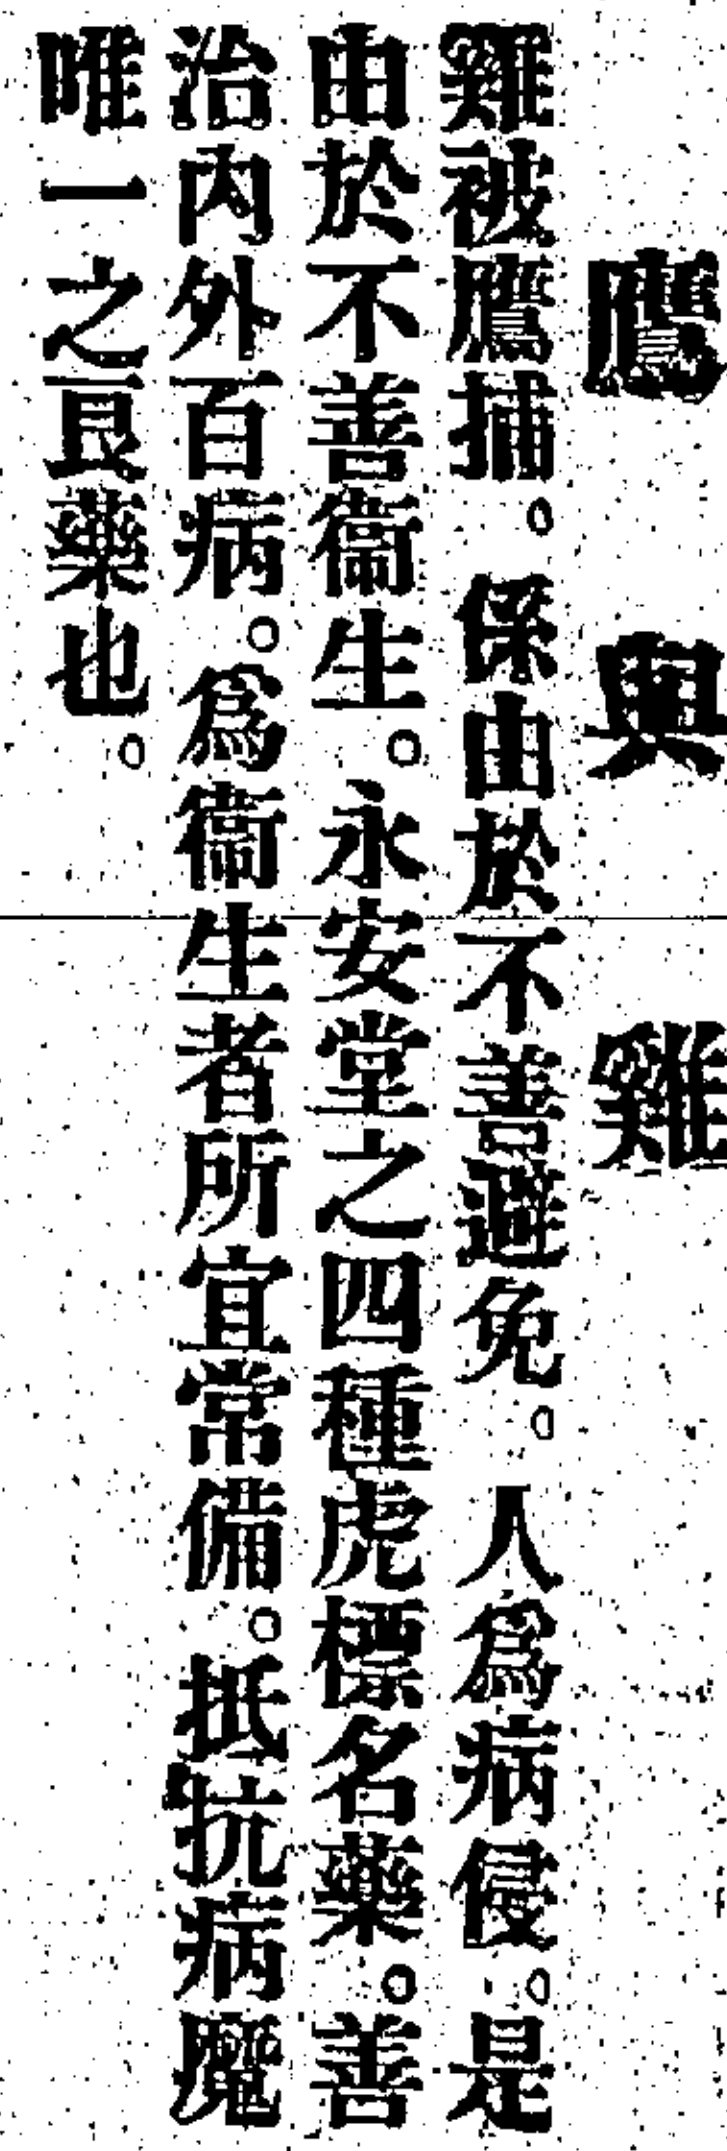 鷹與雞
雞被鷹捕。係由於不善避免。人爲病侵。是
由於不善衞生。永安堂之四種虎標名藥。善
治內外百病。爲衞生者所宜常備。抵抗病魔
唯一之良藥也。